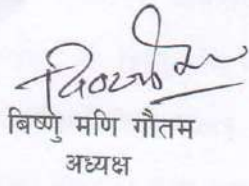 बिष्णु मणि गौतम
अध्यक्ष